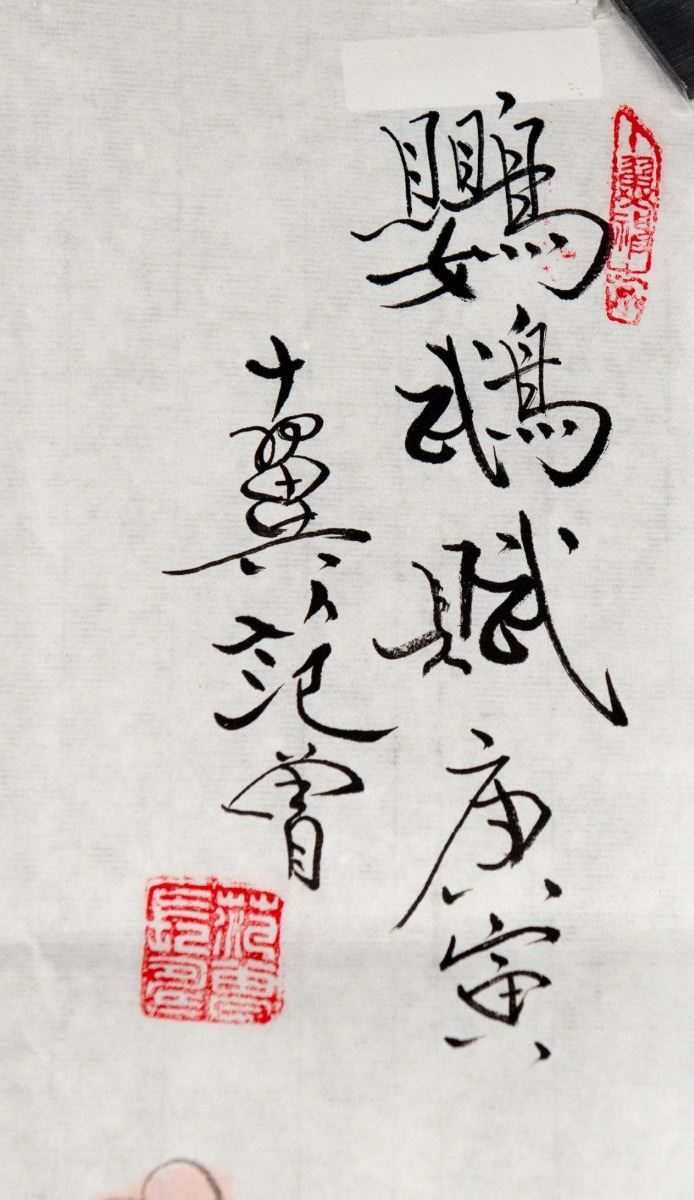 鸚鵡賦庚寅
十翼范曾